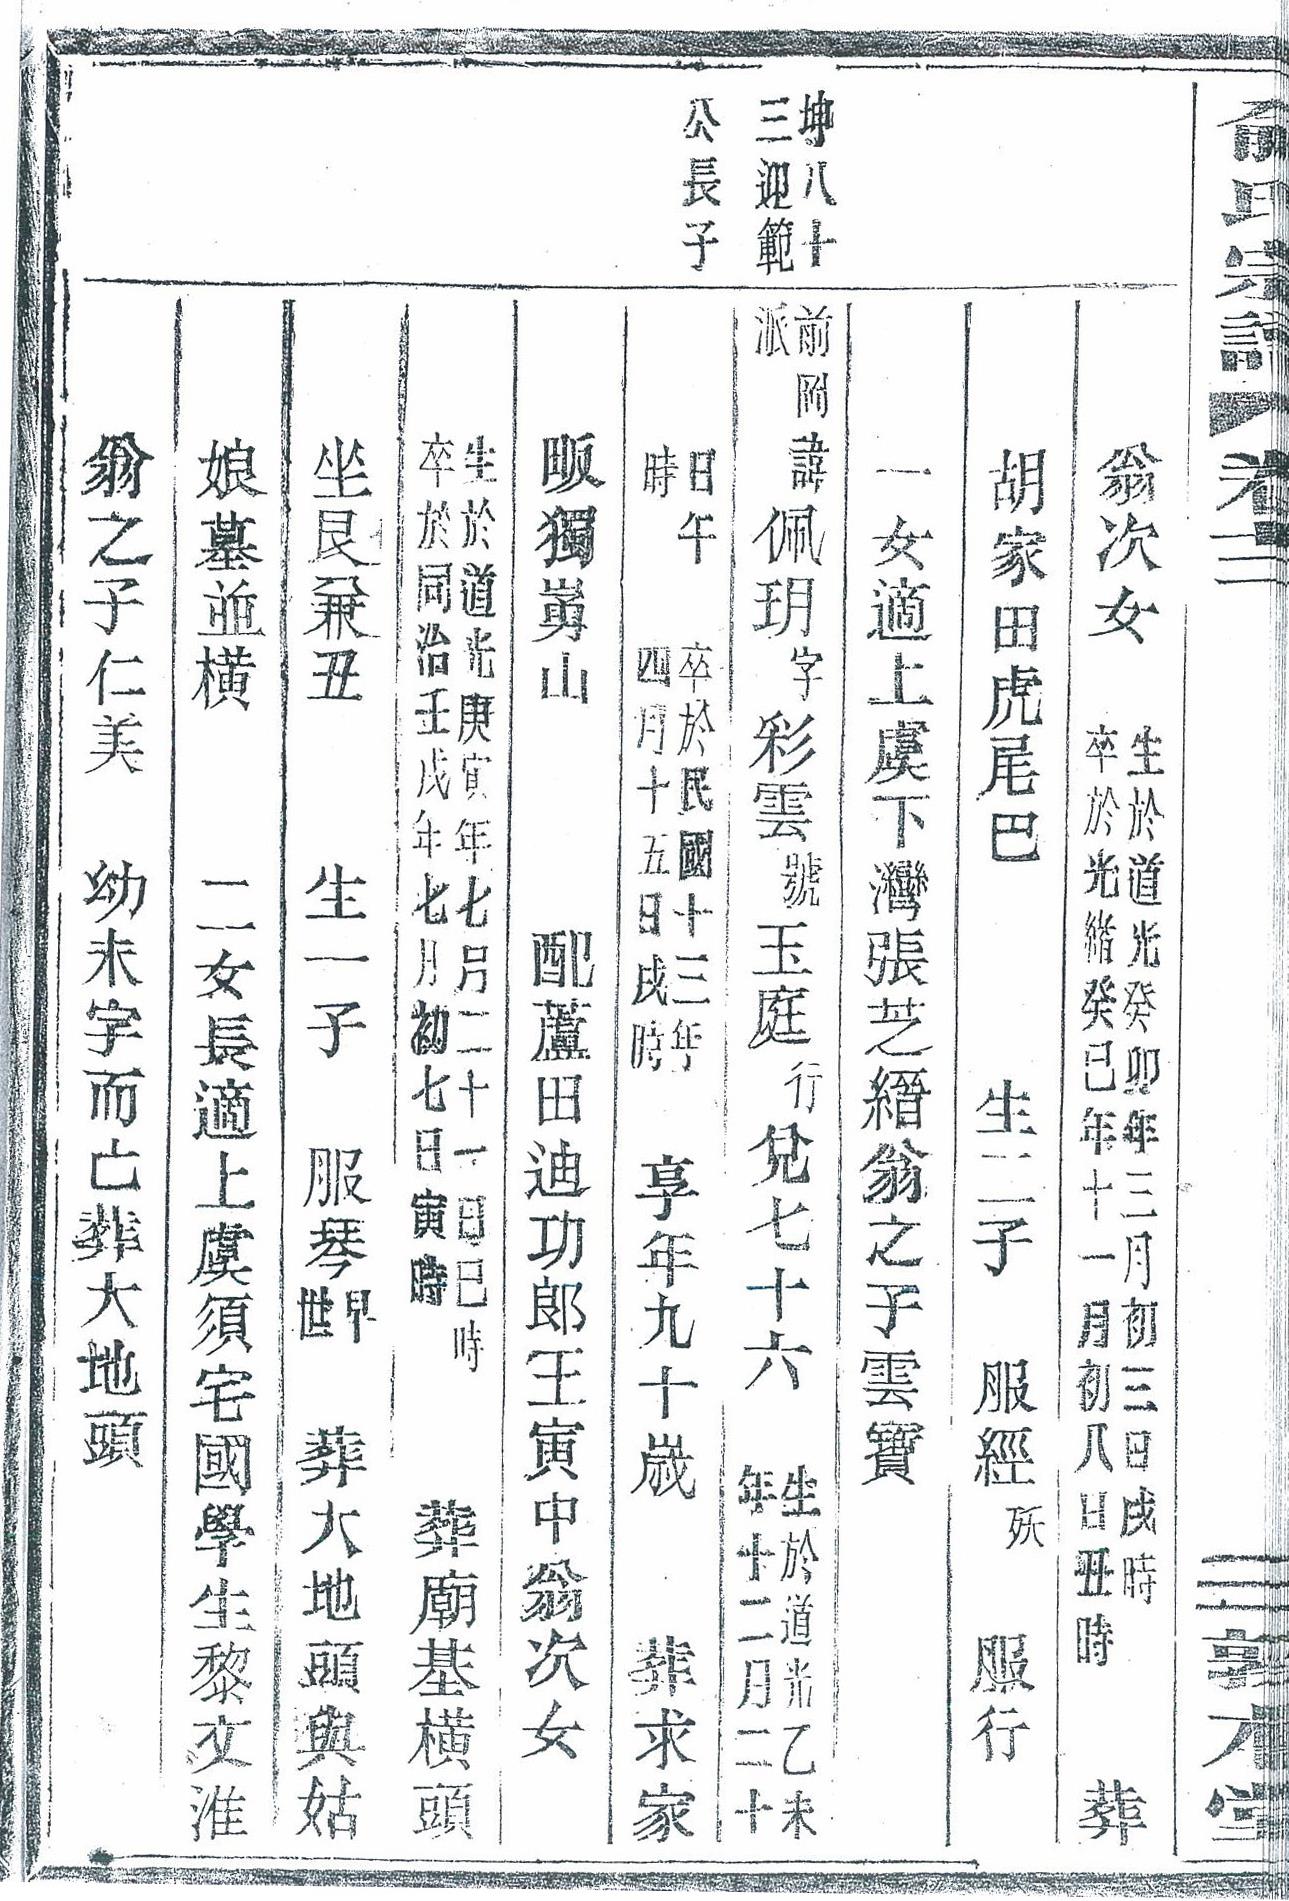 俞氏宗譜 卷二 三 敦本堂
翁次女 生於道光癸卯年三月初三日戌時 卒於光緒癸巳年十一月初八日丑時 葬
胡家田虎尾巴 生二子 服經 殀 服行
一女適上虞下灣張芝縉翁之子雲寶
坤八十
三迎範
公長子
前岡派諱佩玥字彩雲號玉庭行兌七十六 生於道光乙未年十二月二十
日午時 卒於民國十三年四月十五日戌時 享年九十歲 葬求家
畈獨嵩山 配蘆田迪功郎王寅中翁次女
生於道光庚寅年七月二十一日巳時 卒於同治壬戌年七月初七日寅時 葬廟基橫頭
坐艮兼丑 生一子 服琴 世界 葬大地頭與姑
娘墓並橫 二女長適上虞須宅國學生黎文淮
翁之子仁美 幼未字而亡葬大地頭